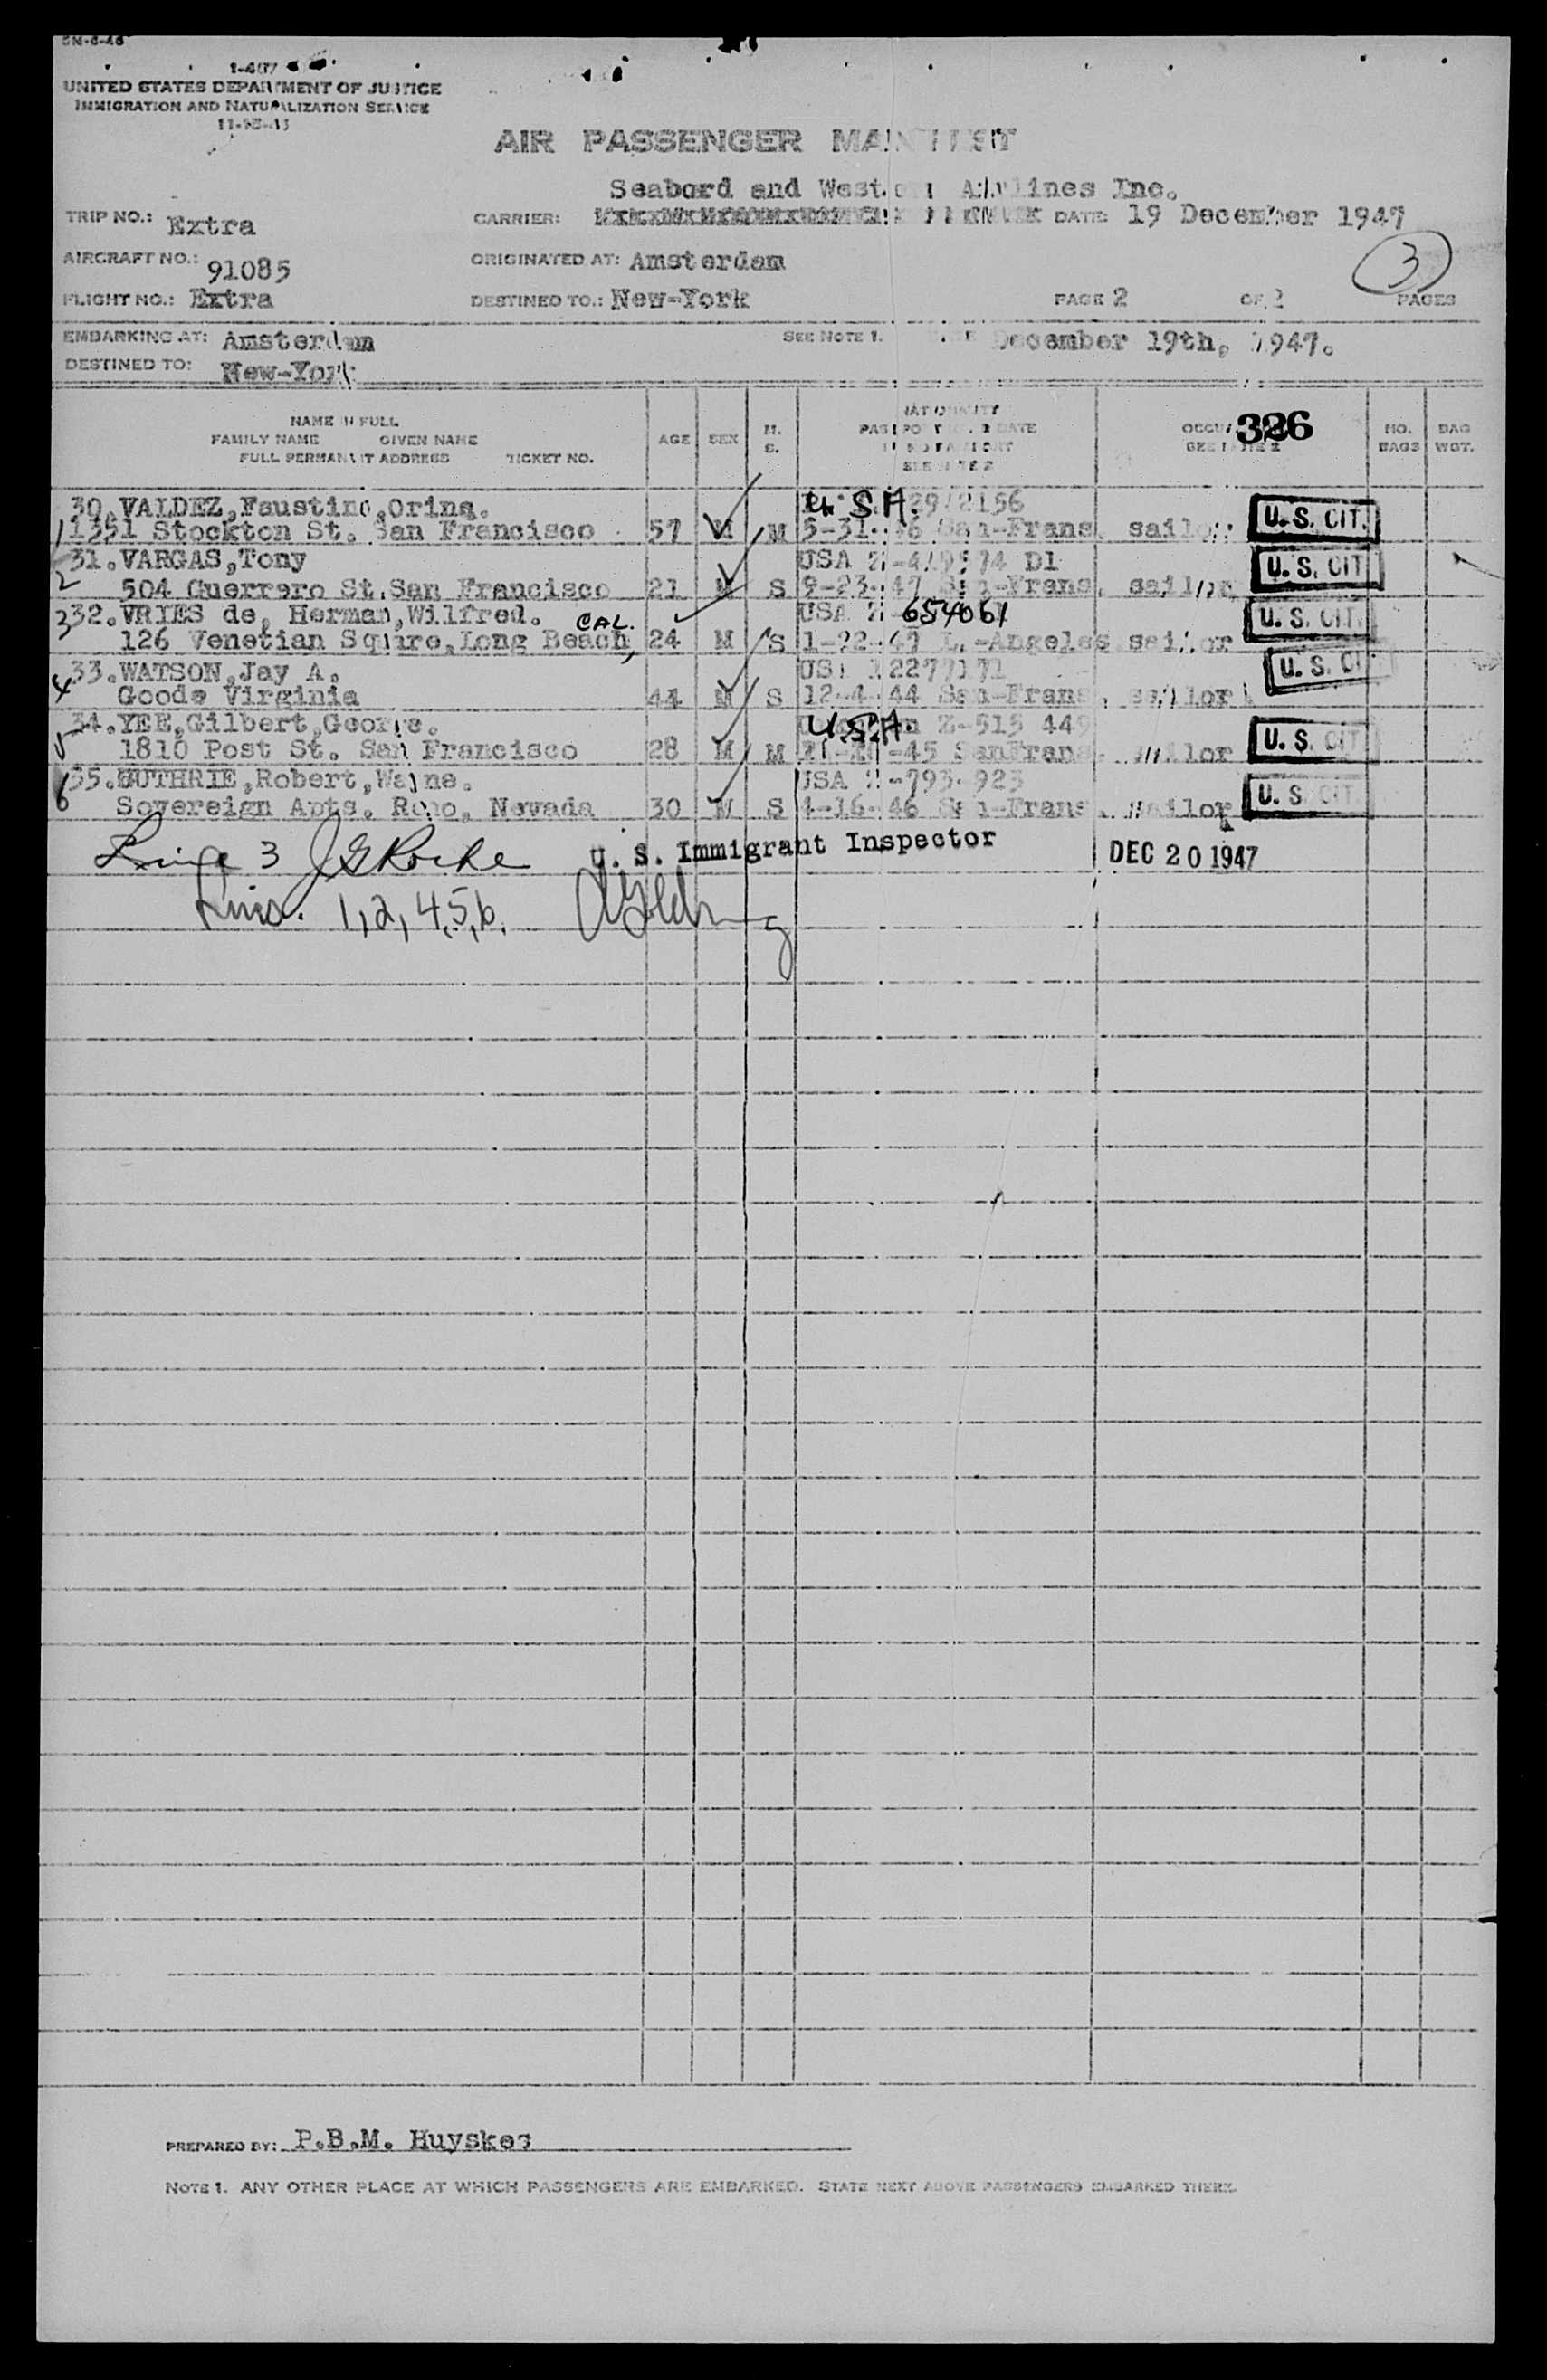 1-407
UNITED STATES DEPARTMENT OF JUSTICE
IMMIGRATION AND NATURALIZATION SERVICE
AIR PASSENGER MANIFEST
Seabord and Western Airlines Inc.
TRIP NO.: Extra CARRIER: DATE: 19 December 1947
AIRCRAFT NO.: 91085 ORIGINATED AT: Amsterdam 3
FLIGHT NO.: Extra DESTINED TO.: New-York PAGE 2 OF 2 PAGES
EMBARKING AT: Amsterdam SEE NOTE 1. DATE December 19th, 1947.
DESTINED TO: New-York
NAME IN FULL
FAMILY NAME GIVEN NAME AGE SEX M. S. NO. BAGS BAG WGT.
FULL PERMANENT ADDRESS TICKET NO. SEE NOTE 2
326
30. VALDEZ, Faustino, Oring. U.S.A.
1 1351 Stockton St. San Francisco 57 M M 5-31-46 San-Frans. sailor U. S. CIT.
31. VARGAS, Tony USA D1
2 504 Guerrero St. San Francisco 21 M S 9-23-47 San-Frans. sailor U. S. CIT.
3 32. VRIES de, Herman, Wilfred. CAL. USA Z 654061
126 Venetian Square, Long Beach, 24 M S 1-22-47 L.-Angeles sailor U. S. CIT.
4 33. WATSON, Jay A. USA Z 2277171
Goode Virginia 44 M S 12-4-44 San-Frans. sailor U. S. CIT.
34. YEE, Gilbert, George. U.S.A. Z-515 449
5 1810 Post St. San Francisco 28 M M -45 SanFrans. sailor U. S. CIT.
6 35. GUTHRIE, Robert, Wayne. USA Z-793-923
Sovereign Apts. Reno, Nevada 30 M S 4-16-46 San-Frans. sailor U. S. CIT.
Line 3 J G Roche U. S. Immigrant Inspector DEC 20 1947
Lines. 1, 2, 4, 5, 6.
PREPARED BY: P.B.M. Huyskes
NOTE 1. ANY OTHER PLACE AT WHICH PASSENGERS ARE EMBARKED. STATE NEXT ABOVE PASSENGERS EMBARKED THERE.